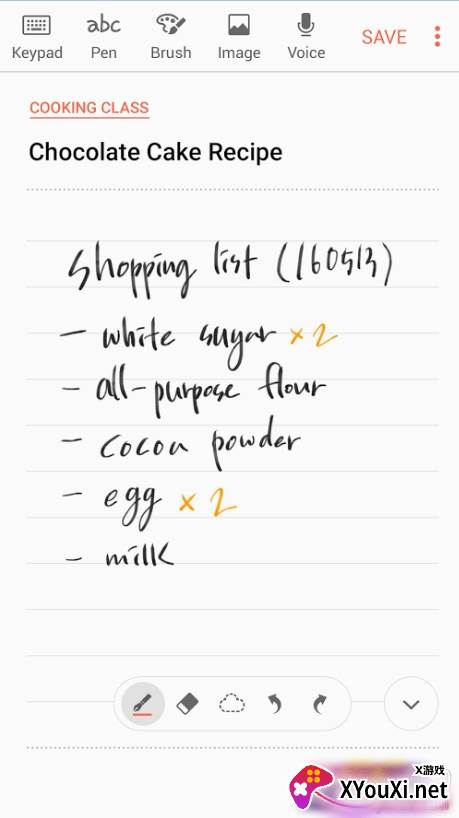 Keypad Pen Brush Image Voice SAVE
abc
COOKING CLASS
Chocolate Cake Recipe
Shopping list (160513)
- white sugar ×2
- all-purpose flour
- cocoa powder
- egg ×2
- milk
X游戏
XYouXi.net